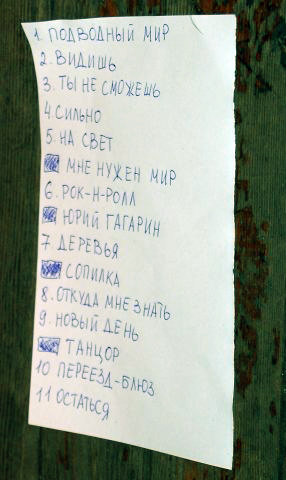 1. ПОДВОДНЫЙ МИР
2. ВИДИШЬ
3. ТЫ НЕ СМОЖЕШЬ
4. СИЛЬНО
5. НА СВЕТ
МНЕ НУЖЕН МИР
6. РОК-Н-РОЛЛ
ЮРИЙ ГАГАРИН
7. ДЕРЕВЬЯ
СОПИЛКА
8. ОТКУДА МНЕ ЗНАТЬ
9. НОВЫЙ ДЕНЬ
ТАНЦОР
10 ПЕРЕЕЗД-БЛЮЗ
11 ОСТАТЬСЯ